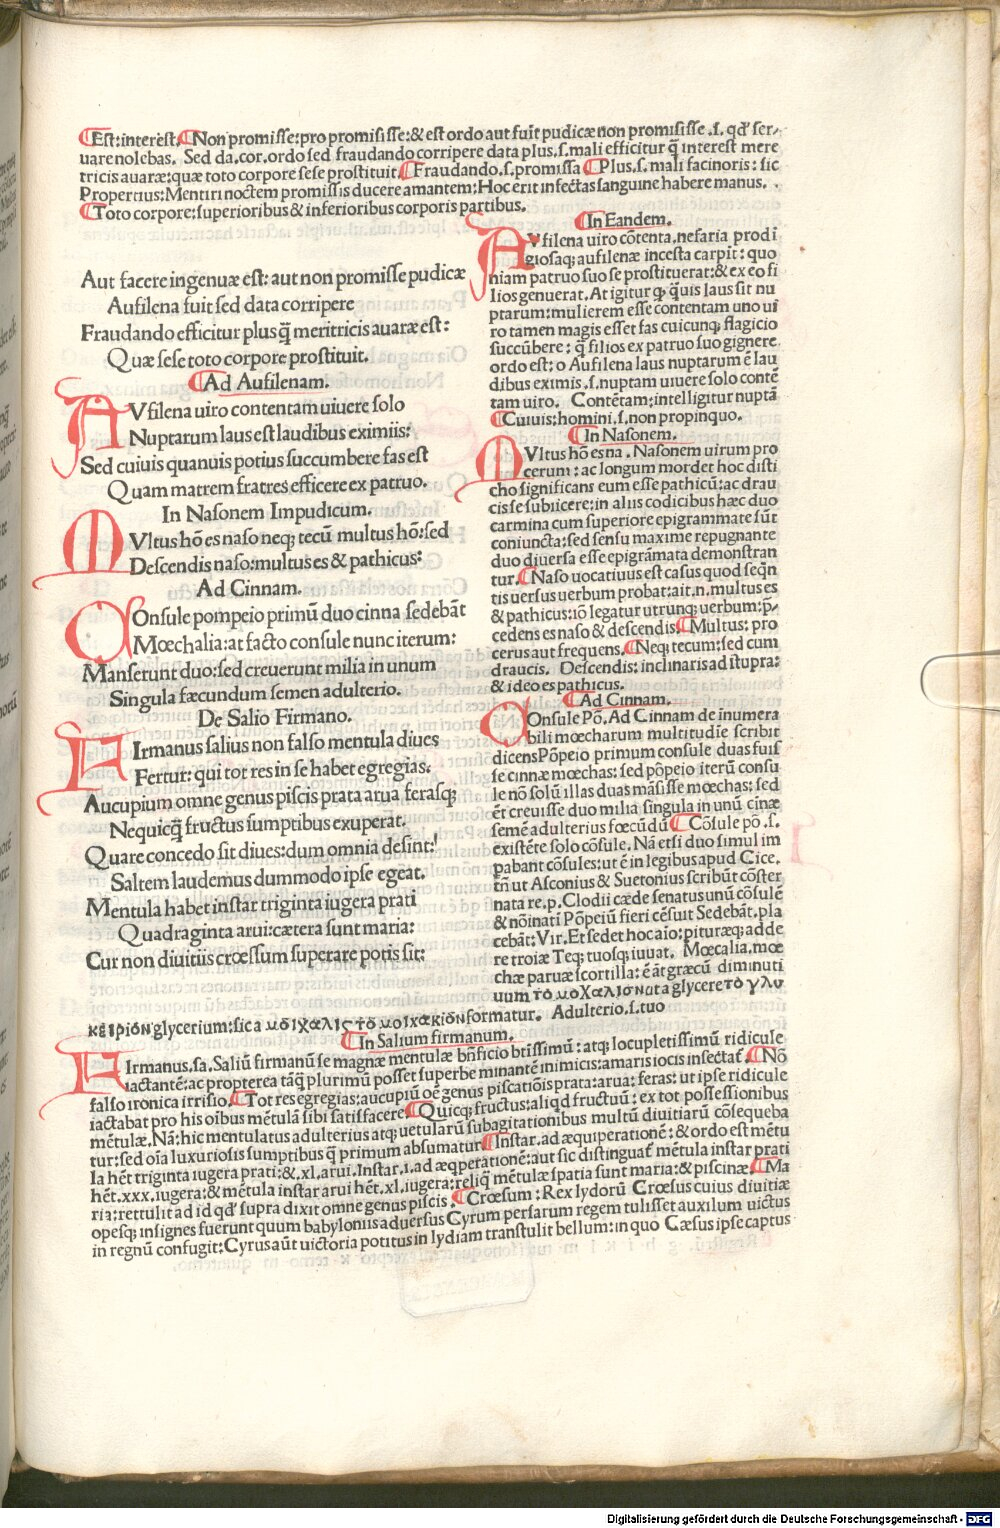 Est:interest. Non promisse:pro promisisse:& est ordo aut fuit pudicæ non promisisse .s. qd' ser-
uare nolebas. Sed da.cor.ordo sed fraudando corripere data plus.s.mali efficitur q̄ interest mere
tricis auaræ:quæ toto corpore sese prostituit. Fraudando.s.promissa Plus.s.mali facinoris: sic
Propertius:Mentiri noctem promissis ducere amantem:Hoc erit infectas sanguine habere manus.
Toto corpore:superioribus & inferioribus corporis partibus.
Aut facere ingenuæ est: aut non promisse pudicæ
Aufilena fuit sed data corripere
Fraudando efficitur plus q̄ meritricis auaræ est:
Quæ sese toto corpore prostituit.
Ad Aufilenam.
AVfilena uiro contentam uiuere solo
Nuptarum laus est laudibus eximiis:
Sed cuiuis quanuis potius succumbere fas est
Quam matrem fratres efficere ex patruo.
In Nasonem Impudicum.
MVltus hō es naso neq; tecū multus hō:sed
Descendis naso:multus es & pathicus:
Ad Cinnam.
COnsule pompeio primū duo cinna sedebāt
Mœchalia:at facto consule nunc iterum:
Manserunt duo:sed creuerunt milia in unum
Singula fæcundum semen adulterio.
De Salio Firmano.
FIrmanus salius non falso mentula diues
Fertur: qui tot res in se habet egregias:
Aucupium omne genus piscis prata arua ferasq;
Nequicq̄ fructus sumptibus exuperat.
Quare concedo sit diues:dum omnia desint:
Saltem laudemus dummodo ipse egeat.
Mentula habet instar triginta iugera prati
Quadraginta arui:cætera sunt maria:
Cur non diuitiis crœssum superare potis sit:
In Eandem.
AVfilena uiro cōtenta.nefaria prodi
giosaq; aufilenæ incesta carpit: quo
niam patruo suo se prostituerat:& ex eo fi
lios genuerat.At igitur q̄ q̄uis laus sit nu
ptarum:mulierem esse contentam uno ui
ro tamen magis esset fas cuicunq; flagicio
succūbere: q̄ filios ex patruo suo gignere.
ordo est: o Aufilena laus nuptarum ē lau
dibus eximis.s.nuptam uiuere solo contē
tam uiro. Contētam:intelligitur nuptā
Cuiuis:homini.s.non propinquo.
In Nasonem.
MVltus hō es na. Nasonem uirum pro
cerum: ac longum mordet hoc disti
cho significans eum esse pathicū:ac drau
cis se subiicere:in aliis codicibus hæc duo
carmina cum superiore epigrammate sūt
coniuncta:sed sensu maxime repugnante
duo diuersa esse epigrāmata demonstran
tur. Naso uocatiuus est casus quod seqn̄
tis uersus uerbum probat:ait.n.multus es
& pathicus:iō legatur utrunq; uerbum:p̄
cedens es naso & descendis. Multus: pro
cerus aut frequens. Neq; tecum:sed cum
draucis. Descendis: inclinaris ad stupra:
& ideo es pathicus.
Ad Cinnam.
COnsule Pō.Ad Cinnam de inumera
bili mœcharum multitudīe scribit
dicens Pōpeio primum consule duas fuis
se cinnæ mœchas: sed pōpeio iterū consu
le nō solū illas duas māsisse mœchas: sed
ēt creuisse duo milia singula in unū cinæ
semē adulterius fœcūdū Cōsule pō.s.
existēte solo cōsule. Nā etsi duo simul im
pabant cōsules:ut ē in legibus apud Cice.
tn̄ ut Asconius & Suetonius scribūt cōster
nata re.p.Clodii cæde senatus unū cōsulē
& noīnati Pōpeiū fieri cēsuit Sedebāt.pla
cebāt:Vir.Et sedet hoc aīo:pituræq; ad de
re troiæ Teq; tuosq; iuuat. Mœcalia.mœ
chæ paruæ scortilla: ē āt græcū diminuti
uum τὸ μοχαλιον uta glycere τὸ γλυ
κείριον glycerium:sic a μοιχαλις τὸ μοιχακιον formatur. Adulterio.s.tuo
In Salium firmanum.
FIrmanus.sa.Saliū firmanū se magnæ mentulæ bn̄ficio btissimū: atq; locupletissimū ridicule
iactantē:ac propterea tāq̄ plurimū posset superbe minantē inimicis:amaris iocis insectaf. Nō
falso ironica irrisio. Tot res egregias:aucupiū oē genus piscatiōis prata:arua: feras: ut ipse ridicule
iactabat pro his oībus mētulā sibi satisfacere. Quicq; fructus:aliqd fructuū: ex tot possessionibus
mētulæ.Nā:hic mentulatus adulterius atq; uetularū subagitationibus multū diuitiarū cōsequeba
tur:sed oīa luxuriosis sumptibus q̄ primum absumatur Instar.ad æquiperationē: & ordo est mētu
la hēt triginta iugera prati:&.xl.arui.Instar.i.ad æqperationē:aut sic distinguat' mētula instar prati
hēt.xxx.iugera:& mētula instar arui hēt.xl.iugera:reliq̄ mētulæ spatia sunt maria:& piscinæ. Ma
ria:rettulit ad id qd' supra dixit omne genus piscis. Crœsum: Rex lydorū Crœsus cuius diuitiæ
opesq; insignes fuerunt quum babyloniis aduersus Cyrum persarum regem tulisset auxilum uictus
in regnū confugit:Cyrus aūt uictoria potitus in lydiam transtulit bellum:in quo Cæsus ipse captus
Digitalisierung gefördert durch die Deutsche Forschungsgemeinschaft - DFG